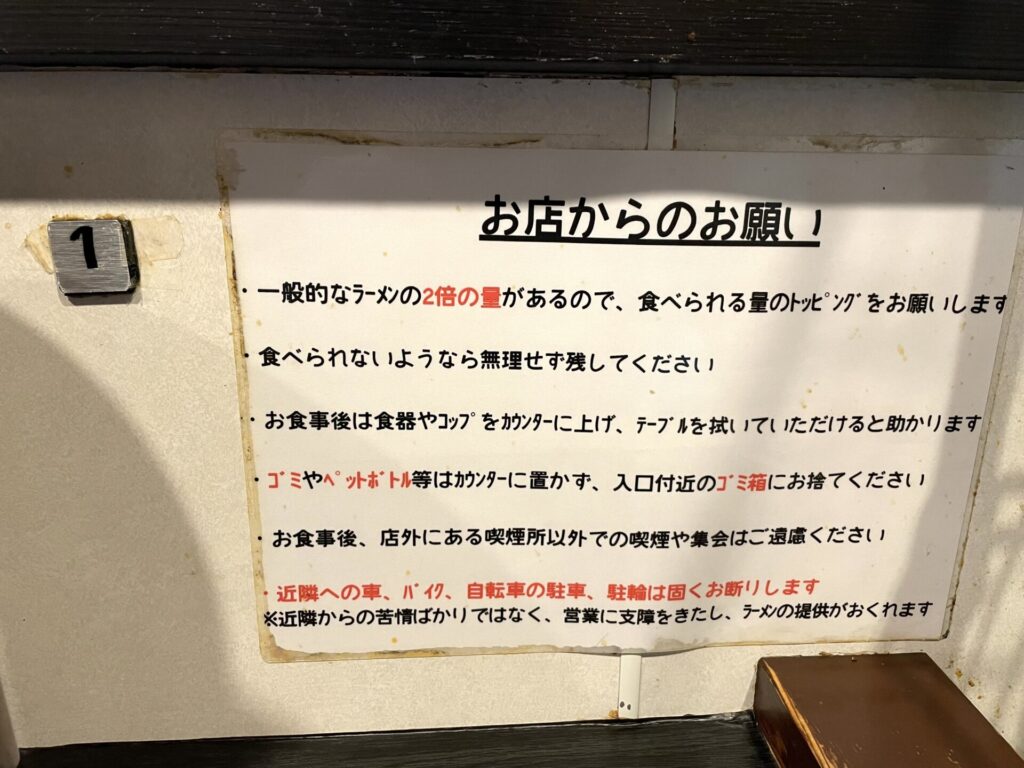 1
お店からのお願い
・一般的なﾗｰﾒﾝの2倍の量があるので、食べられる量のﾄｯﾋﾟﾝｸﾞをお願いします
・食べられないようなら無理せず残してください
・お食事後は食器やｺｯﾌﾟをｶｳﾝﾀｰに上げ、ﾃｰﾌﾞﾙを拭いていただけると助かります
・ｺﾞﾐやﾍﾟｯﾄﾎﾞﾄﾙ等はｶｳﾝﾀｰに置かず、入口付近のｺﾞﾐ箱にお捨てください
・お食事後、店外にある喫煙所以外での喫煙や集会はご遠慮ください
・近隣への車、ﾊﾞｲｸ、自転車の駐車、駐輪は固くお断りします
※近隣からの苦情ばかりではなく、営業に支障をきたし、ﾗｰﾒﾝの提供がおくれます